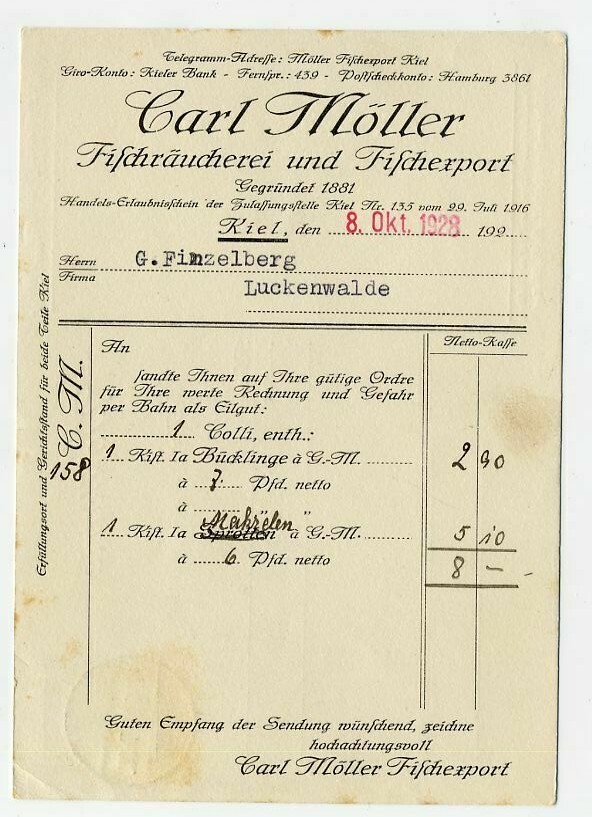 Telegramm-Adresse: Möller Fischexport Kiel
Giro-Konto: Kieler Bank - Fernspr.: 439 - Postscheckkonto: Hamburg 3861
Carl Möller
Fischräucherei und Fischexport
Gegründet 1881
Handels-Erlaubnisschein der Zulassungsstelle Kiel Nr. 135 vom 29. Juli 1916
Kiel, den 8. Okt. 1928 192
Herrn G. Finzelberg
Firma Luckenwalde
Netto-Kasse
An
sandte Ihnen auf Ihre gütige Ordre
für Ihre werte Rechnung und Gefahr
per Bahn als Eilgut:
1 Colli, enth.:
1 Kist. Ia Bücklinge à G.-M. 2 90
à 7 Pfd. netto
à "
Makrelen
1 Kist. Ia Sprotten à G.-M. 5 10
à 6 Pfd. netto 8 -
Guten Empfang der Sendung wünschend, zeichne
hochachtungsvoll
Carl Möller Fischexport
Erfüllungsort und Gerichtsstand für beide Teile Kiel
C. M.
158